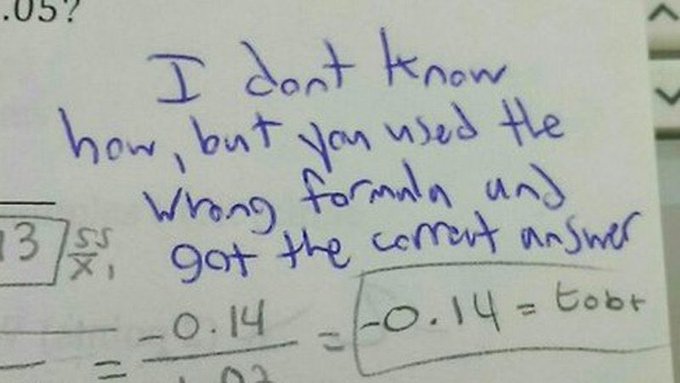 .05?
I dont know
how, but you used the
wrong formula and
got the correct answer
13 SS
X̄₁
= -0.14 = -0.14 = tobt